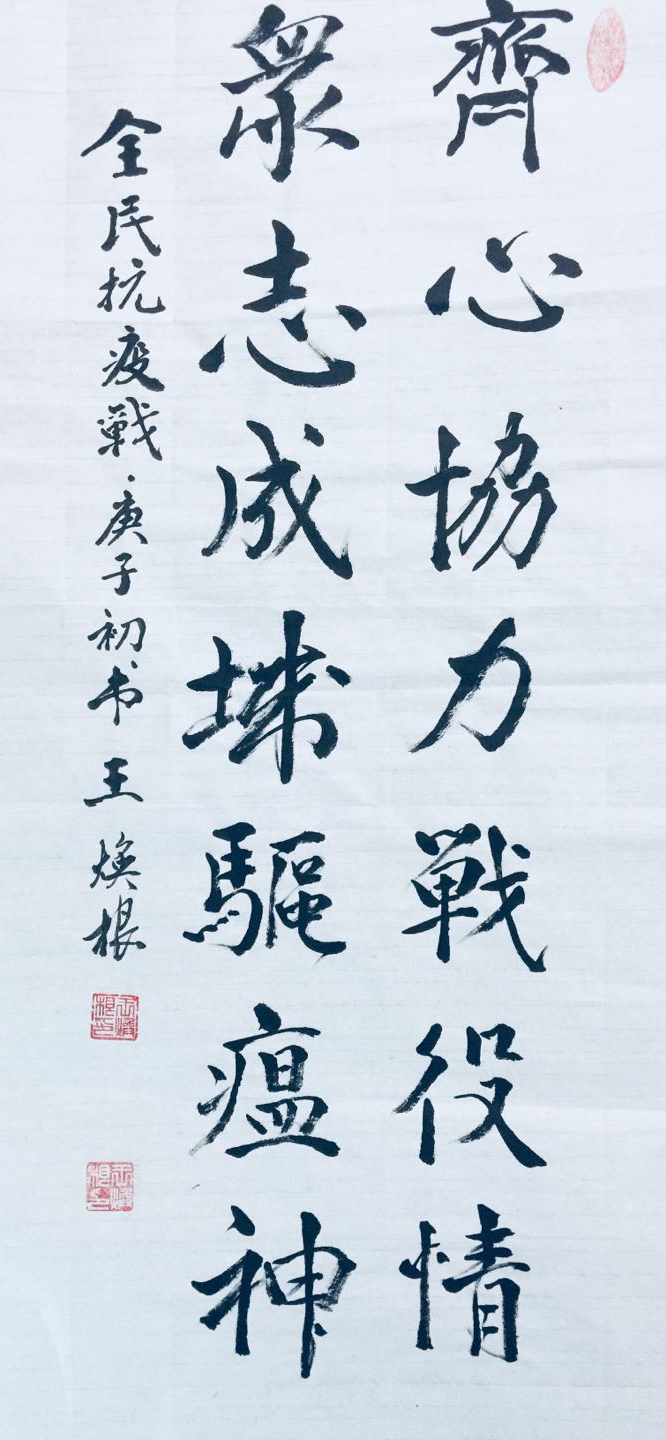 齊心協力戰役情
衆志成城驅瘟神
全民抗疫戰·庚子初书王焕根